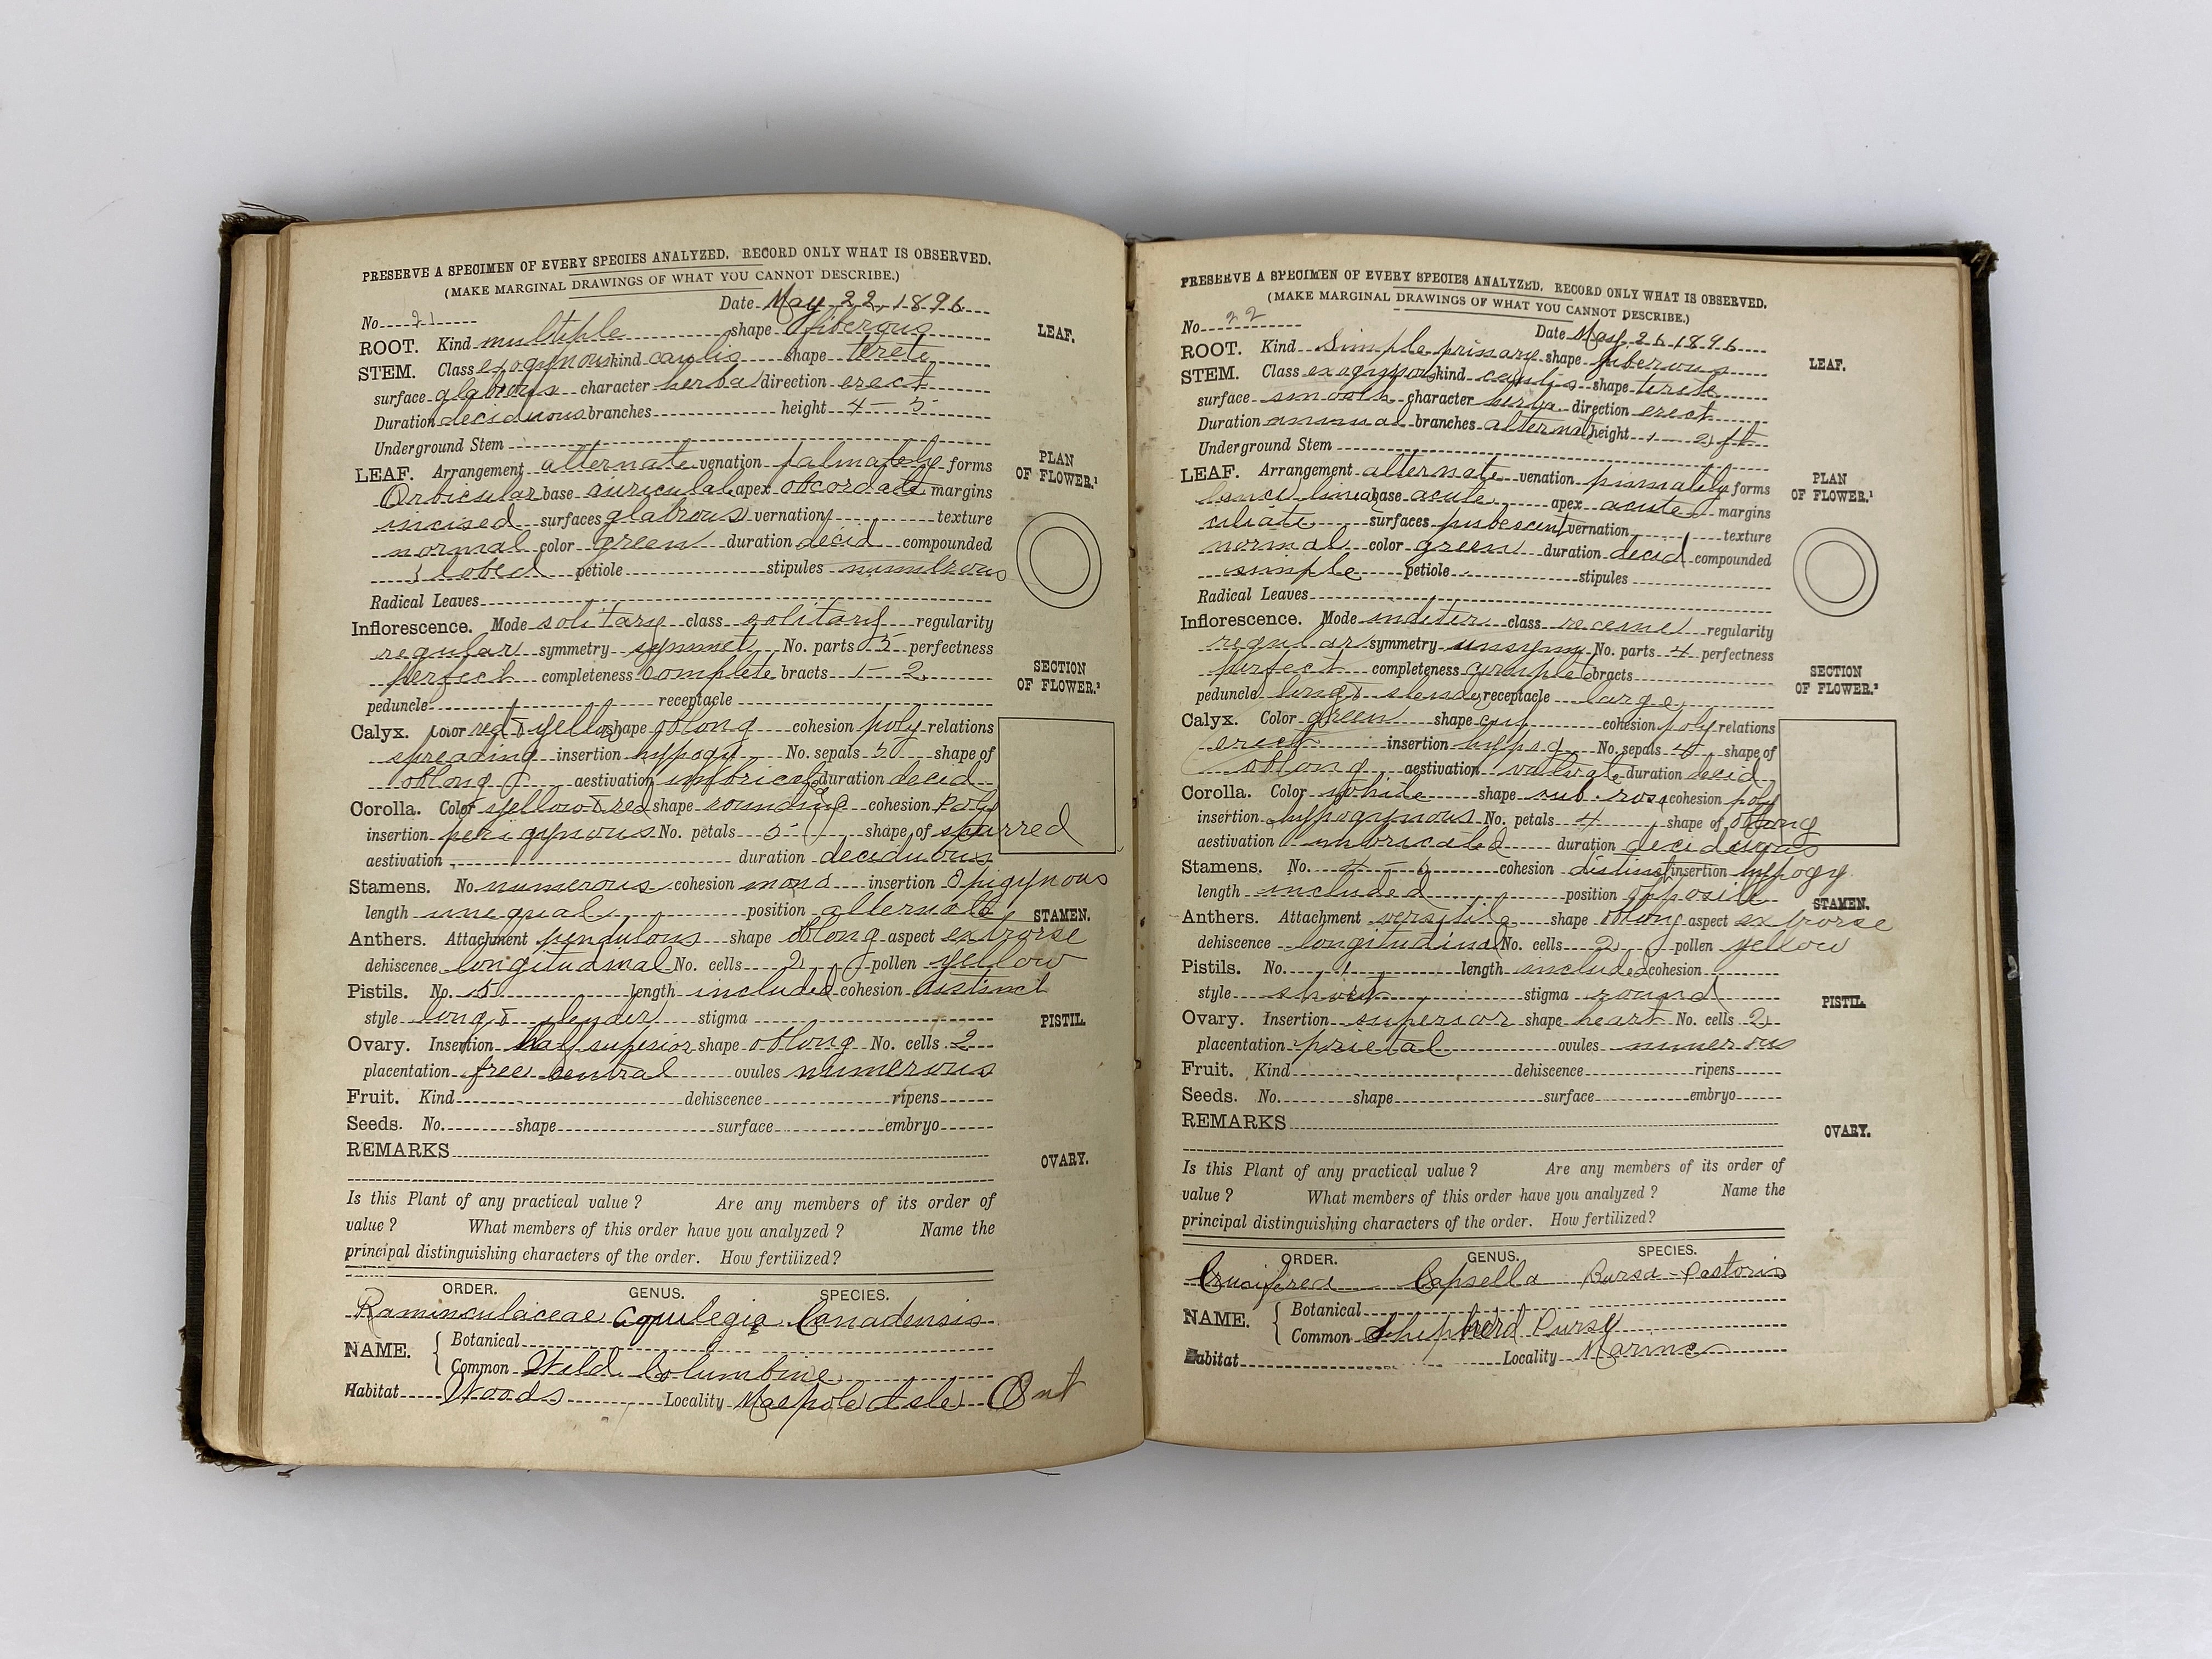 PRESERVE A SPECIMEN OF EVERY SPECIES ANALYZED. RECORD ONLY WHAT IS OBSERVED.
(MAKE MARGINAL DRAWINGS OF WHAT YOU CANNOT DESCRIBE.)
No. 21 Date May 22, 1896
ROOT. Kind multiple shape fiberous
STEM. Class exogynous kind caulis shape terete
surface glabrous character herba direction erect
Duration deciduous branches height 4-5
Underground Stem
LEAF. Arrangement alternate venation palmately forms
Orbicular base auriculal apex obcordate margins
incised surfaces glabrous vernation texture
normal color green duration decid compounded
lobed petiole stipules numerous
Radical Leaves
Inflorescence. Mode solitary class solitary regularity
regular symmetry symmet No. parts 5 perfectness
perfect completeness complete bracts 1-2
peduncle receptacle
Calyx. Color red & yellow shape oblong cohesion poly relations
spreading insertion hypogy No. sepals 5 shape of
oblong aestivation imbricated duration decid
Corolla. Color yellow & red shape cohesion Poly
insertion perigynous No. petals 5 shape of spurred
aestivation duration deciduous
Stamens. No. numerous cohesion mona insertion Epigynous
length unequal position alternate
Anthers. Attachment pendulous shape oblong aspect extrorse
dehiscence longitudinal No. cells 2 pollen yellow
Pistils. No. 5 length included cohesion distinct
style long & slender stigma
Ovary. Insertion half superior shape oblong No. cells 2
placentation free central ovules numerous
Fruit. Kind dehiscence ripens
Seeds. No. shape surface embryo
REMARKS
Is this Plant of any practical value? Are any members of its order of
value? What members of this order have you analyzed? Name the
principal distinguishing characters of the order. How fertiiized?
ORDER. GENUS. SPECIES.
Raminculaceae Aquilegia Canadensis
NAME. { Botanical
Common Wild Columbine
Habitat Woods Locality Isle Ont
LEAF.
PLAN
OF FLOWER.¹
SECTION
OF FLOWER.²
STAMEN.
PISTIL
OVARY.
PRESERVE A SPECIMEN OF EVERY SPECIES ANALYZED. RECORD ONLY WHAT IS OBSERVED.
(MAKE MARGINAL DRAWINGS OF WHAT YOU CANNOT DESCRIBE.)
No. 22 Date May 26 1896
ROOT. Kind Simple primary shape fiberous
STEM. Class exogynous kind caulis shape terete
surface smooth character herba direction erect
Duration annual branches alternal height 1-2 ft
Underground Stem
LEAF. Arrangement alternate venation pinnately forms
linear base acute apex acute margins
ciliate surfaces pubescent vernation texture
normal color green duration decid compounded
simple petiole stipules
Radical Leaves
Inflorescence. Mode indeter class receme regularity
regular symmetry unsymm No. parts 4 perfectness
perfect completeness complete bracts
peduncle long & slender receptacle large
Calyx. Color green shape cup cohesion poly relations
erect insertion hypog No. sepals 4 shape of
oblong aestivation valvate duration decid
Corolla. Color white shape sub-rosa cohesion poly
insertion hypogynous No. petals 4 shape of oblong
aestivation imbricated duration deciduous
Stamens. No. 4-6 cohesion distinct insertion hypogy
length included position opposite
Anthers. Attachment versitile shape oblong aspect extrorse
dehiscence longitudinal No. cells 2 pollen yellow
Pistils. No. 1 length included cohesion
style short stigma round
Ovary. Insertion superior shape heart No. cells 2
placentation prietal ovules numerous
Fruit. Kind dehiscence ripens
Seeds. No. shape surface embryo
REMARKS
Is this Plant of any practical value? Are any members of its order of
value? What members of this order have you analyzed? Name the
principal distinguishing characters of the order. How fertilized?
ORDER. GENUS. SPECIES.
Crusiferea Capsella Bursa-Pastoris
NAME. { Botanical
Common Shipherd Purse
Habitat Locality Marine
LEAF.
PLAN
OF FLOWER.¹
SECTION
OF FLOWER.²
STAMEN.
PISTIL.
OVARY.